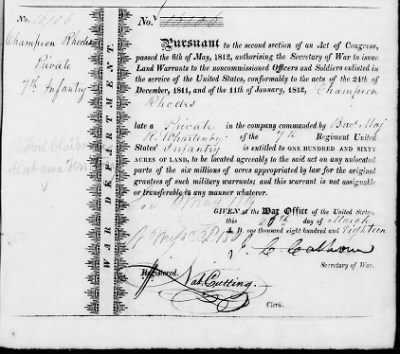 No. 10106
Champion Rhodes
Private
7th Infantry
WAR DEPARTMENT.
No.
Pursuant to the second section of an Act of Congress,
passed the 6th of May, 1812, authorising the Secretary of War to issue
Land Warrants to the noncommissioned Officers and Soldiers enlisted in
the service of the United States, conformably to the acts of the 24th of
December, 1811, and the 11th of January, 1812, Champion
Rhodes
late a Private in the company commanded by Brev. Maj
Whartenby of the 7th Regiment United
States' Infantry is entitled to ONE HUNDRED AND SIXTY
ACRES OF LAND, to be located agreeably to the said act on any unlocated
parts of the six millions of acres appropriated by law for the original
grantees of such military warrants; and this warrant is not assignable
or transferable in any manner whatever.
GIVEN at the War Office of the United States
this day of March
A. D. one thousand eight hundred and Eighteen
J. C. Calhoun
Secretary of War.
Registered.
Nat. Cutting.
Clerk.